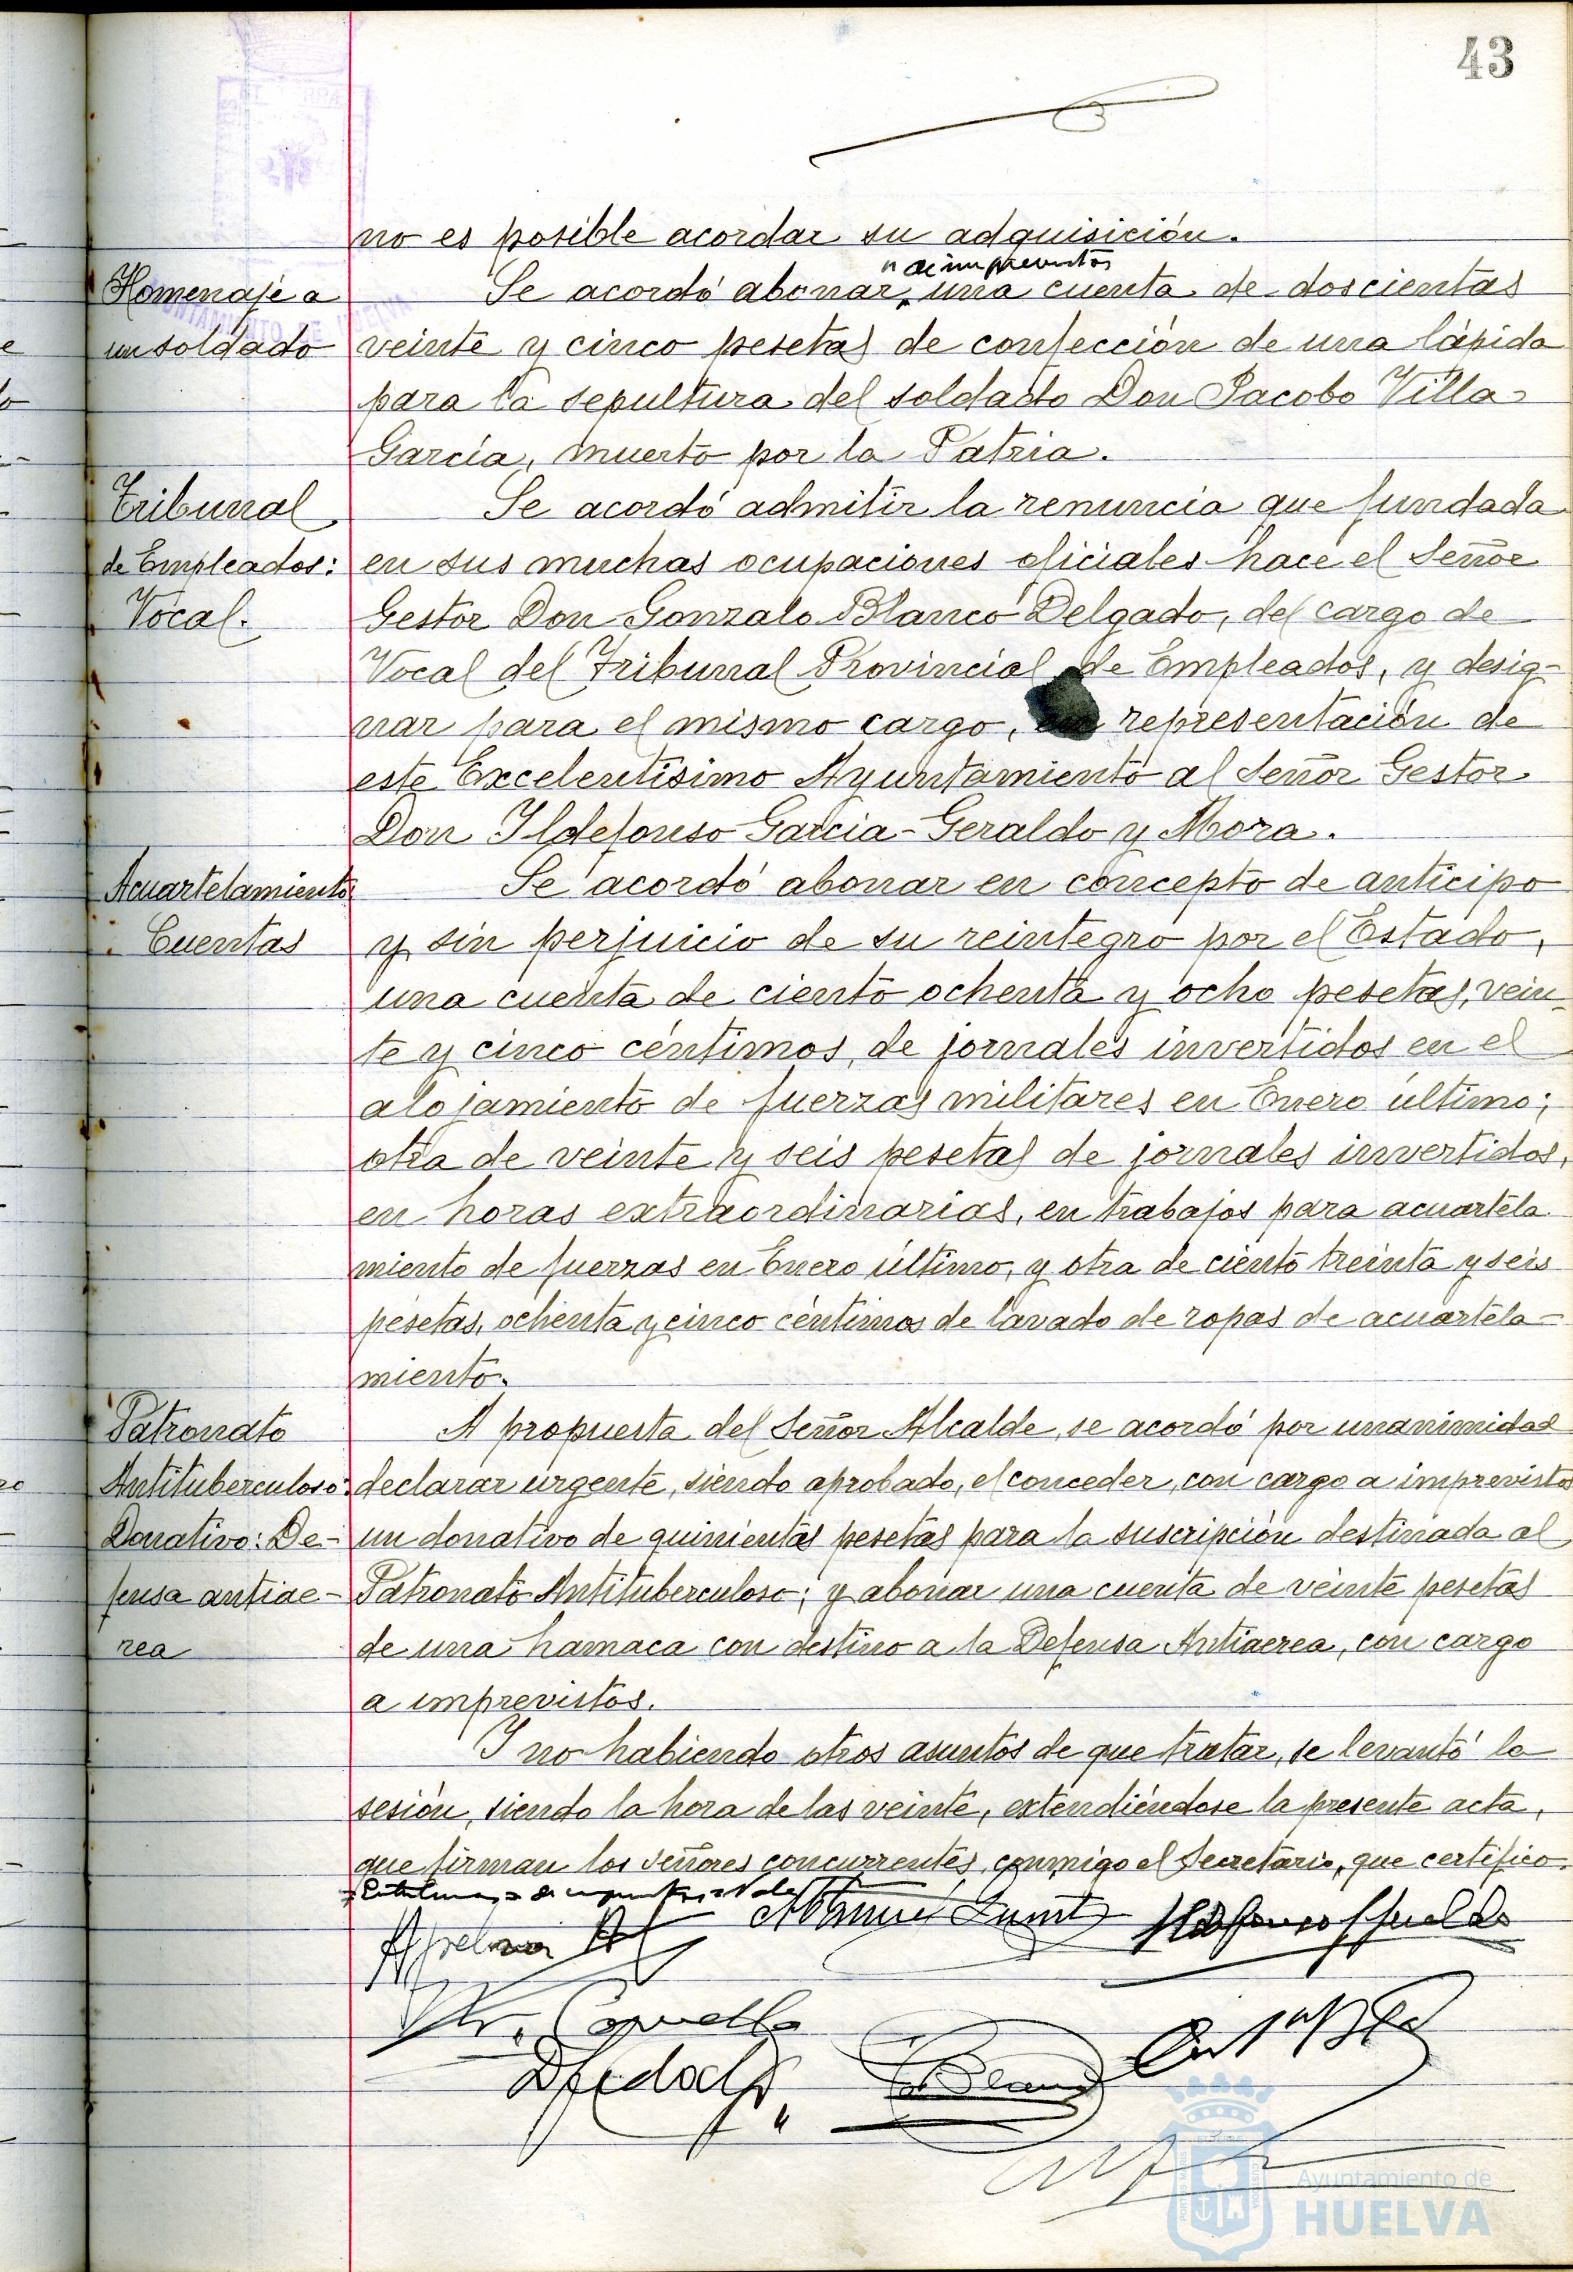 43
no es posible acordar su adquisición.
" de imprevistos
Homenaje a
un soldado
Se acordó abonar, una cuenta de doscientas
veinte y cinco pesetas de confección de una lápida
para la sepultura del soldado Don Jacobo Villa
García, muerto por la Patria.
Tribunal
de Empleados:
Vocal.
Se acordó admitir la renuncia que fundada
en sus muchas ocupaciones oficiales hace el Señor
Gestor Don Gonzalo Blanco Delgado, del cargo de
Vocal del Tribunal Provincial de Empleados, y desig-
nar para el mismo cargo, en representación de
este Excelentísimo Ayuntamiento al Señor Gestor
Don Ildefonso Garcia-Geraldo y Mora.
Acuartelamiento
Cuentas
Se acordó abonar en concepto de anticipo
y sin perjuicio de su reintegro por el Estado,
una cuenta de ciento ochenta y ocho pesetas, vein-
te y cinco céntimos, de jornales invertidos en el
alojamiento de fuerzas militares en Enero último;
otra de veinte y seis pesetas de jornales invertidos,
en horas extraordinarias, en trabajos para acuartela
miento de fuerzas en Enero último, y otra de ciento treinta y seis
pesetas, ochenta y cinco céntimos de lavado de ropas de acuartela-
miento.
Patronato
Antituberculoso:
Donativo: De-
fensa antiae-
rea
A propuesta del Señor Alcalde, se acordó por unanimidad
declarar urgente, siendo aprobado, el conceder, con cargo a imprevistos
un donativo de quinientas pesetas para la suscripción destinada al
Patronato Antituberculoso; y abonar una cuenta de veinte pesetas
de una hamaca con destino a la Defensa Antiaerea, con cargo
a imprevistos.
Y no habiendo otros asuntos de que tratar, se levantó la
sesión, siendo la hora de las veinte, extendiéndose la presente acta,
que firman los señores concurrentes, conmigo el Secretario, que certifico.
Ildefonso Geraldo
Blanco
Ayuntamiento de
HUELVA